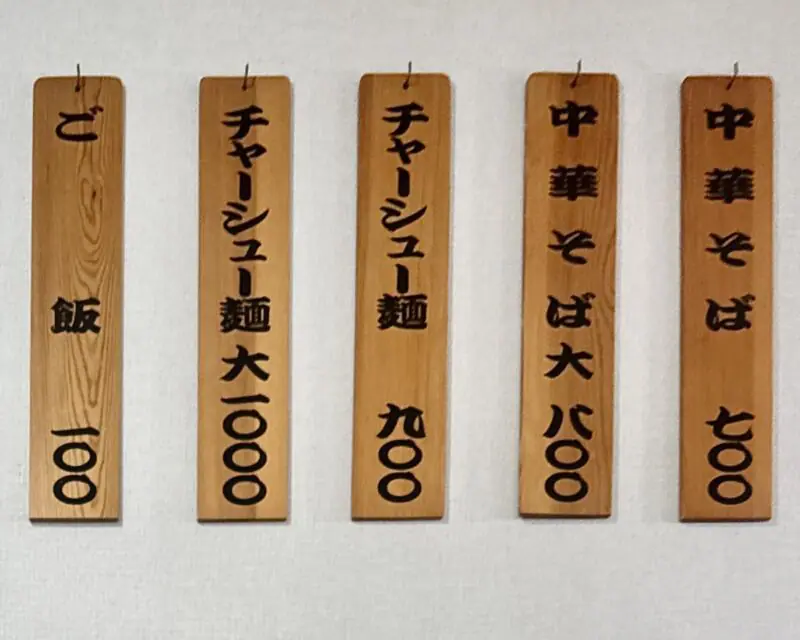 中華そば 七〇〇
中華そば大 八〇〇
チャーシュー麺 九〇〇
チャーシュー麺大 一〇〇〇
ご飯 一〇〇